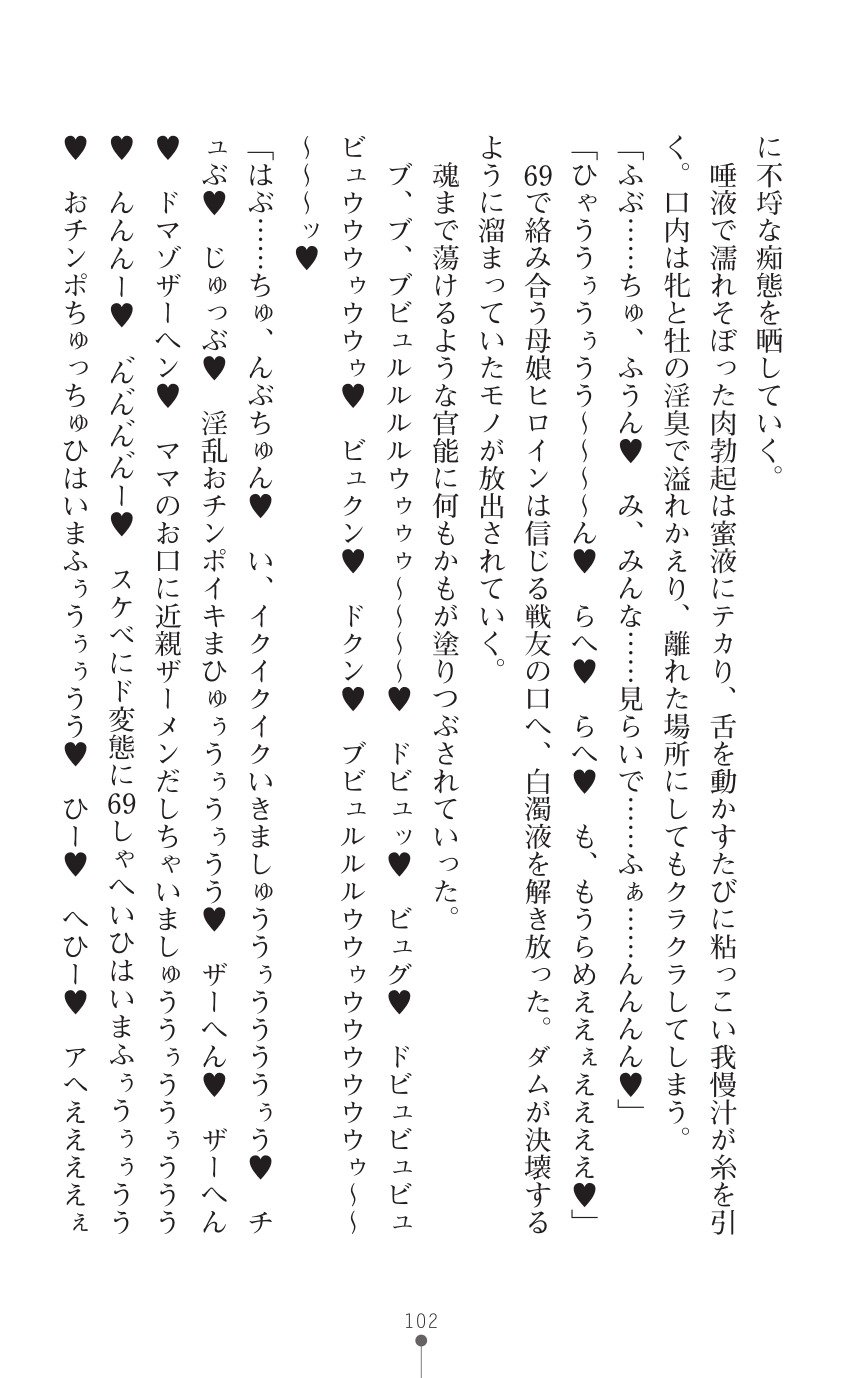 に不埒な痴態を晒していく。
　唾液で濡れそぼった肉勃起は蜜液にテカり、舌を動かすたびに粘っこい我慢汁が糸を引
く。口内は牝と牡の淫臭で溢れかえり、離れた場所にしてもクラクラしてしまう。
「ふぶ……ちゅ、ふうん♥　み、みんな……見らいで……ふぁ……んんんん♥」
「ひゃううぅうぅうう～～～～ん♥　らへ♥　らへ♥　も、もうらめええぇええええ♥」
　69で絡み合う母娘ヒロインは信じる戦友の口へ、白濁液を解き放った。ダムが決壊する
ように溜まっていたモノが放出されていく。
　魂まで蕩けるような官能に何もかもが塗りつぶされていった。
　ブ、ブ、ブビュルルルルウゥゥゥ～～～～♥　ドビュッ♥　ビュグ♥　ドビュビュビュ
ビュウウウゥウウゥ♥　ビュクン♥　ドクン♥　ブビュルルルウウゥウウウウウウゥ～～
～～～ッ♥
「はぶ……ちゅ、んぶちゅん♥　い、イクイクイクいきましゅううぅううううぅう♥　チ
ュぶ♥　じゅっぶ♥　淫乱おチンポイキまひゅぅうぅうぅうう♥　ザーへん♥　ザーへん
♥　ドマゾザーヘン♥　ママのお口に近親ザーメンだしちゃいましゅううぅううぅううう
♥　んんんー♥　ん゛ん゛ん゛ん゛ー♥　スケベにド変態に69しゃへいひはいまふぅうぅぅうう
♥　おチンポちゅっちゅひはいまふぅうぅぅうう♥　ひー♥　へひー♥　アへええええぇ
102